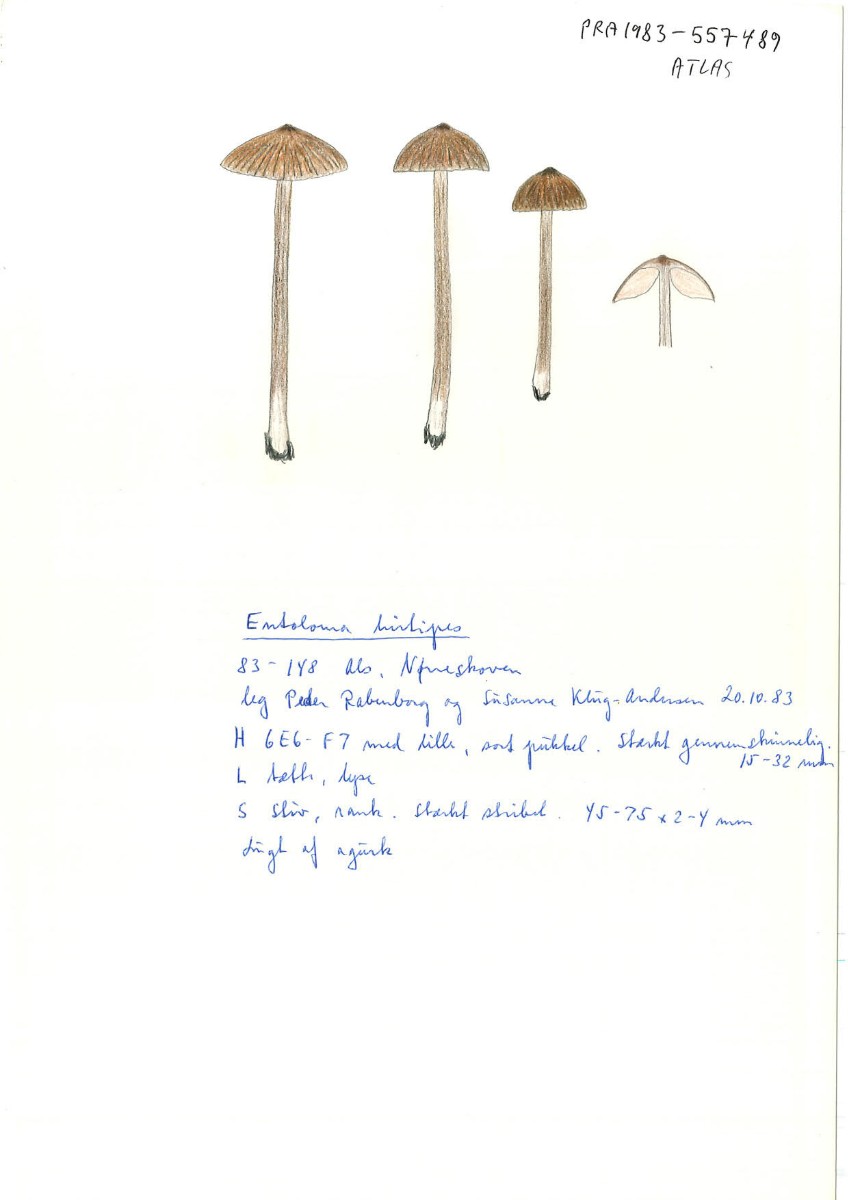 PRA1983-557489
ATLAS
Entoloma hirtipes
83-148 Als, Nørreskoven
leg Peder Rabenborg og Susanne Klug-Andersen 20.10.83
H 6E6-F7 med lille, sort pukkel. Stærkt gennemskinnelig.
15-32 mm
L tætte, lyse
S stiv, rank. Stærkt stribet. 45-75 x 2-4 mm
Lugt af agurk